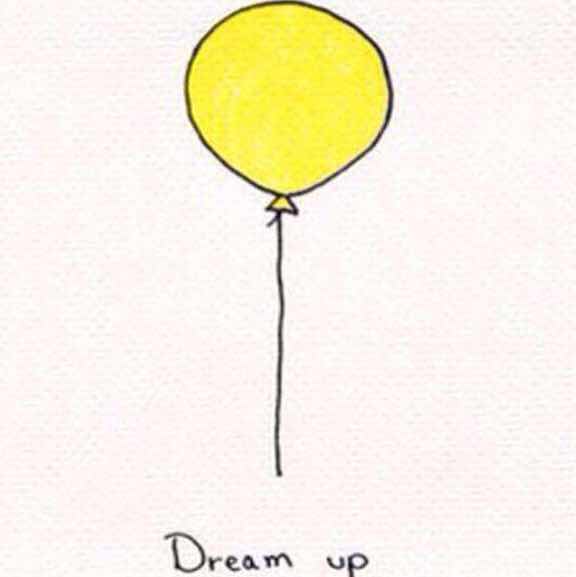 Dream up